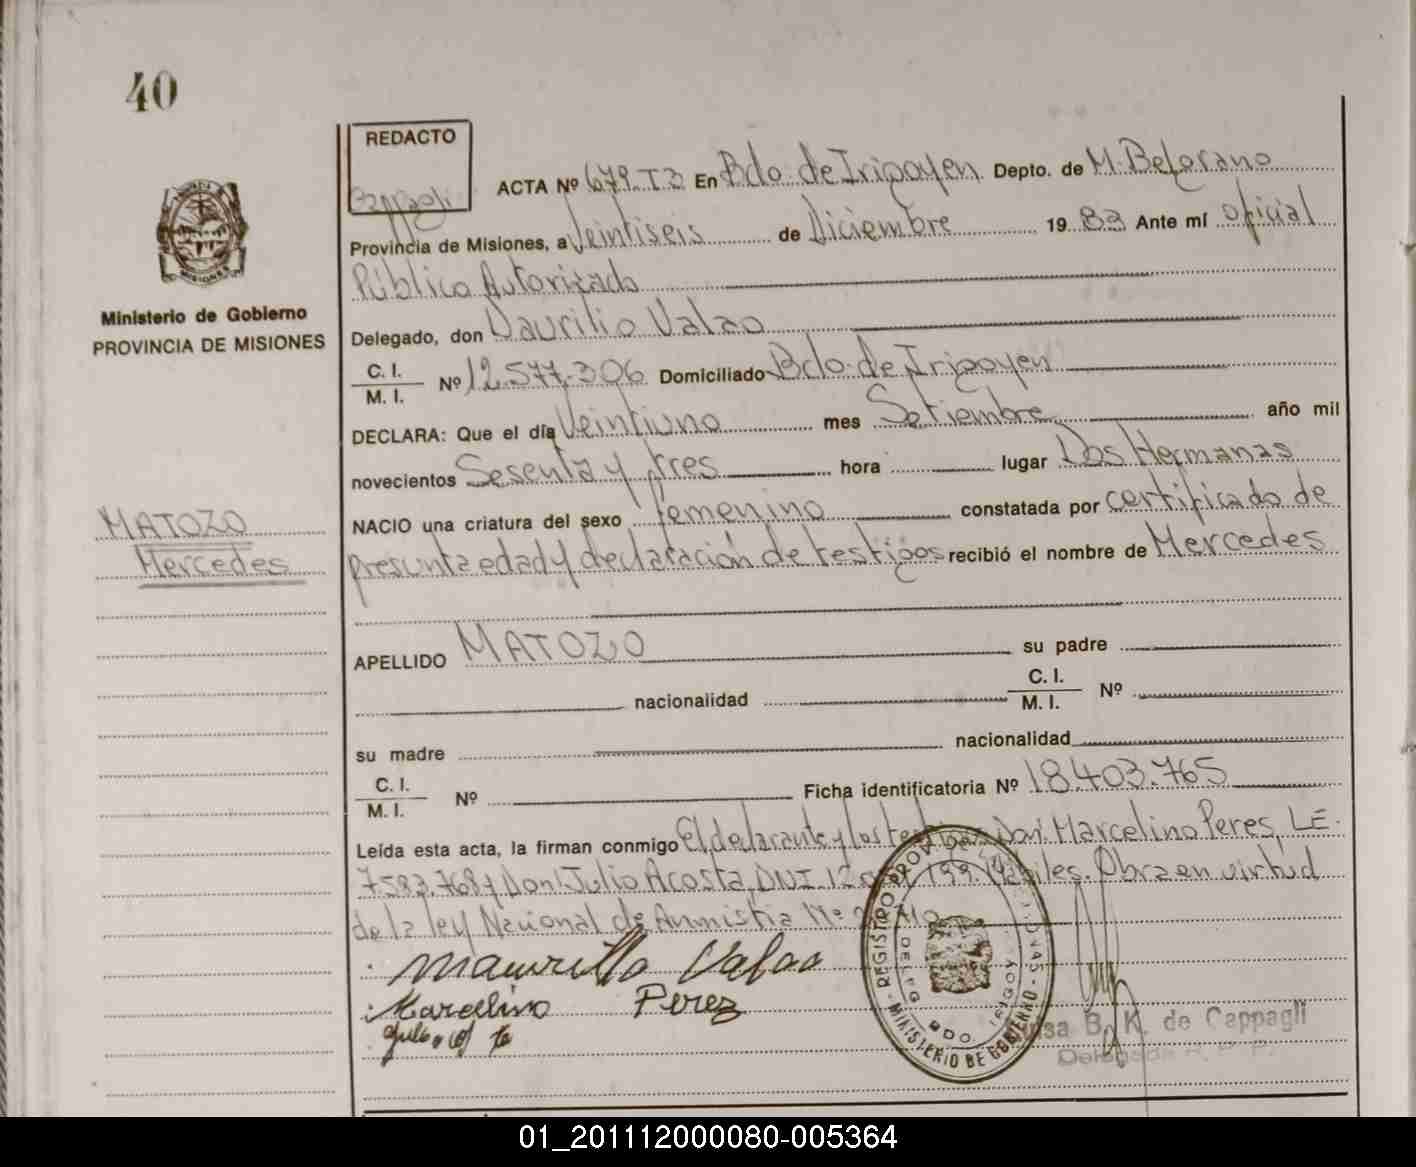 40
REDACTO
Cappagli
ACTA Nº 679. T3 En Bdo. de Irigoyen Depto. de M. Belgrano
Provincia de Misiones, a Veintiseis de Diciembre 19 83 Ante mí oficial
Público Autorizado
Ministerio de Gobierno
PROVINCIA DE MISIONES
Delegado, don Maurilio Valao
C. I.
M. I.
Nº 12.577.306 Domiciliado Bdo. de Irigoyen
DECLARA: Que el día Veintiuno mes Setiembre año mil
novecientos Sesenta y tres hora lugar Dos Hermanas
MATOZO
Mercedes
NACIO una criatura del sexo femenino constatada por certificado de
presunta edad y declaración de testigos recibió el nombre de Mercedes
APELLIDO MATOZO su padre
nacionalidad C. I.
M. I. Nº
su madre nacionalidad
C. I.
M. I.
Nº Ficha identificatoria Nº 18.403.765
Leída esta acta, la firman conmigo El declarante y los testigos Don: Marcelino Peres, LE.
7583.768 y Don: Julio Acosta, DNI. 12 199. Hábiles. Obra en virtud
de la ley Nacional de Amnistia Nº
Maurilio Valao
Marcelino Perez
REGISTRO PROV
DELEG
BDO. IRIGOY
MINISTERIO DE GOBIERNO
Luisa B. K. de Cappagli
Delegada R. P. P.
01_201112000080-005364